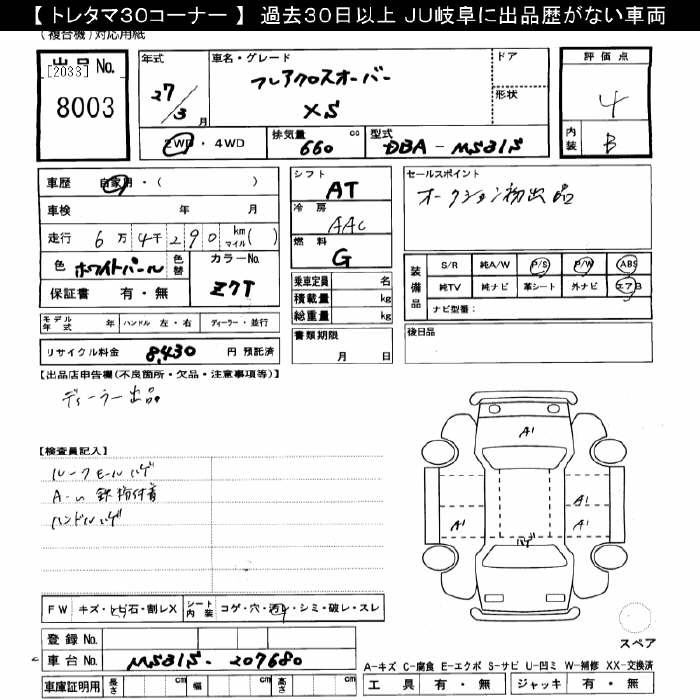 【 トレタマ30コーナー 】 過去30日以上 JU岐阜に出品歴がない車両
(複合機)対応用紙
出品 No.
[2033]
8003
年式
27/3 月
車名・グレード
フレアクロスオーバー
XS
ドア
形状
評価点
4
内装
B
2WD ・ 4WD
排気量 660 cc
型式 DBA - MS31S
車歴 自家用・( )
車検 年 月
走行 6万4千290 km マイル( )
色 ホワイトパール
色替
カラーNo.
Z7T
保証書 有・無
シフト
AT
冷房
AAC
燃料
G
乗車定員 名
積載量 kg
総重量 kg
セールスポイント
オークション初出品
装備品
S/R 純A/W P/S P/W ABS
純TV 純ナビ 革シート 外ナビ エアB
ナビ型番:
モデル年式 年 ハンドル 左・右 ディーラー・並行
書類期限
月 日
後日品
リサイクル料金 8,430 円 預託済
【出品店申告欄(不良箇所・欠品・注意事項等)】
ディーラー出品
【検査員記入】
ルーフモールハゲ
ハンドルハゲ
A1
A1
A1
A1
ハゲ
FW キズ・トビ石・割レX
シート内装 コゲ・穴・汚レ・シミ・破レ・スレ
スペア
登録 No.
車台 No. MS31S - 207680
車庫証明用 長さ cm 幅 cm 高さ cm
A-キズ C-腐食 E-エクボ S-サビ U-凹ミ W-補修 XX-交換済
工具 有・無 ジャッキ 有・無